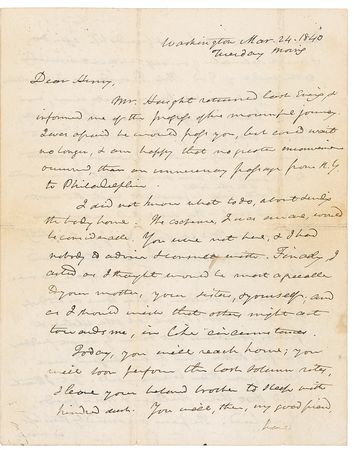 Washington Mar. 24. 1840
Tuesday Morng
Dear Henry,
Mr. Haight returned last Eveng, &
informed me of the progress of his mournful journey.
I was afraid he would pass you, but could wait
no longer, & am happy that no greater inconvenience
occurred, than an unnecessary passage from N.Y.
to Philadelphia.
I did not know what to do, about sending
the body home. The expense, I was aware, would
be considerable. You were not here, & I had
nobody to advise & counsel with. Finally, I
acted as I thought would be most agreeable
to your mother, your sister, & yourself, and
as I should wish that others might act
towards me, in like circumstances.
Today, you will reach home; you
will soon perform the last solemn rites,
& leave your beloved brother to sleep with
kindred dust. You will, then, my good friend,
have